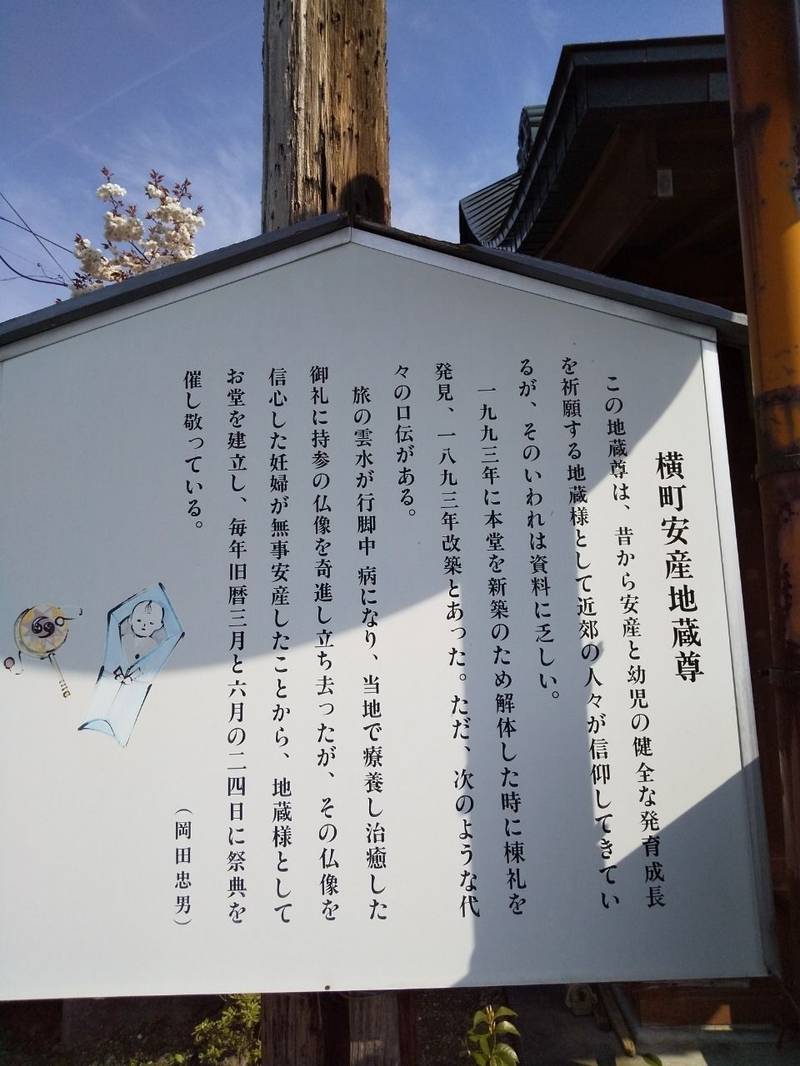 横町安産地蔵尊
この地蔵尊は、昔から安産と幼児の健全な発育成長
を祈願する地蔵様として近郊の人々が信仰してきてい
るが、そのいわれは資料に乏しい。
一九九三年に本堂を新築のため解体した時に棟礼を
発見、一八九三年改築とあった。ただ、次のような代
々の口伝がある。
旅の雲水が行脚中 病になり、当地で療養し治癒した
御礼に持参の仏像を奇進し立ち去ったが、その仏像を
信心した妊婦が無事安産したことから、地蔵様として
お堂を建立し、毎年旧暦三月と六月の二四日に祭典を
催し敬っている。
（岡田忠男）